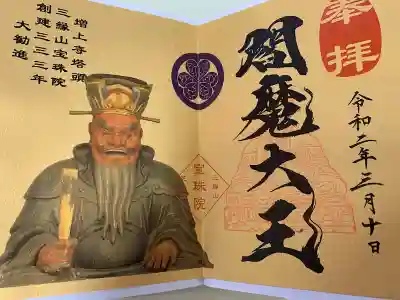 奉拝
閻魔大王
令和二年三月十日
増上寺塔頭
三縁山宝珠院
創建三三三年
大勧進
三縁山
宝珠院